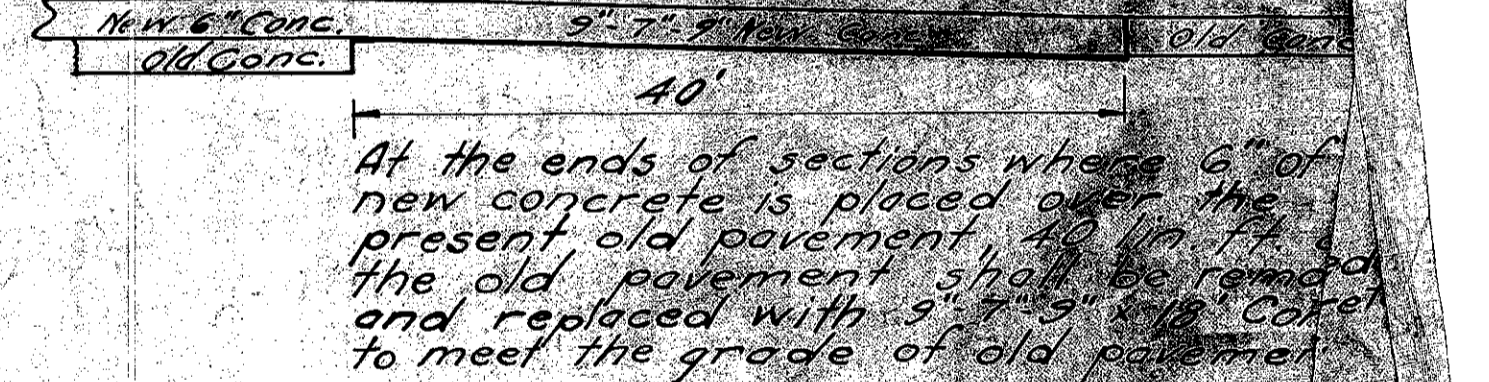 New 6" Conc. 9"-7"-9" New Conc. Old Conc
Old Conc.
40'
At the ends of sections where 6" of
new concrete is placed over the
present old pavement, 40 lin. ft.
the old pavement shall be
and replaced with 9"-7"-9" x 18'
to meet the grade of old